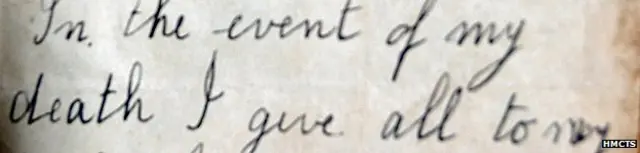 In. the event of my
death I give all to my
HMCTS